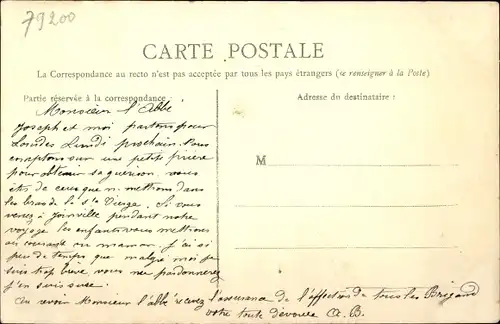 79200
CARTE POSTALE
La Correspondance au recto n'est pas acceptée par tous les pays étrangers (se renseigner à la Poste)
Partie réservée à la correspondance
Adresse du destinataire :
M
Monsieur l'Abbé
Joseph et moi partons pour
Lourdes Lundi prochain. Vous
comptons sur une petite prière
pour obtenir sa guérison. vous
êtes de ceux que n. mettons dans
les bras de la Ste Vierge. Si vous
venez à Joinville pendant notre
voyage les enfants vous mettrons
au courant ou maman. J'ai si
peu de temps que malgré moi je
suis trop brève, vous me pardonnerez
j'en suis sûre.
au revoir Monsieur l'abbé recevez l'assurance de l'affection de tous les Brigand
votre toute dévouée A. B.